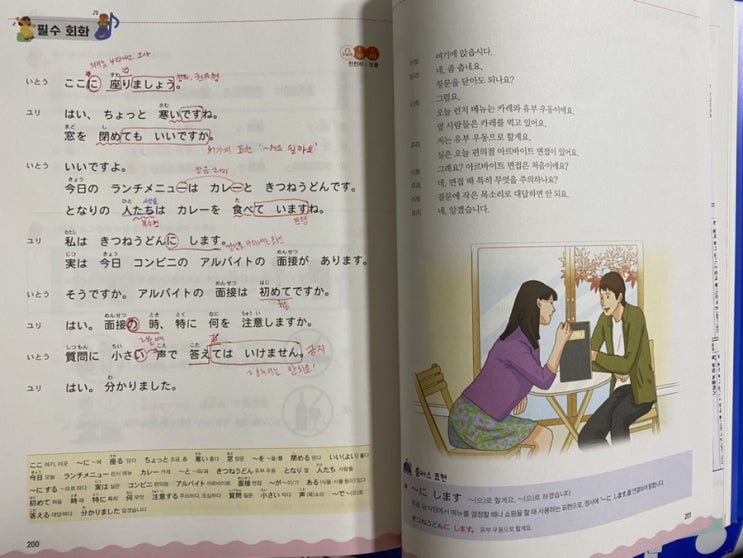 필수 회화
천천히 보통
いとう ここに 座りましょう。
ユリ はい、ちょっと 寒いですね。
窓を 閉めても いいですか。
いとう いいですよ。
今日の ランチメニューは カレーと きつねうどんです。
となりの 人たちは カレーを 食べて いますね。
ユリ 私は きつねうどんに します。
実は 今日 コンビニの アルバイトの 面接が あります。
いとう そうですか。アルバイトの 面接は 初めてですか。
ユリ はい。面接の 時、特に 何を 注意しますか。
いとう 質問に 小さい 声で 答えては いけません。
금지
ユリ はい。分かりました。
ここ 여기, 이곳 ~に ~에 座る 앉다 ちょっと 조금, 좀 寒い 춥다 窓 창문 ~を ~을/를 閉める 닫다 いい(よい) 좋다
今日 오늘 ランチメニュー 런치 메뉴 カレー 카레 ~と ~와/과 きつねうどん 유부 우동 となり 옆 人たち 사람들
~にする ~으로 하다 実は 실은 コンビニ 편의점 アルバイト 아르바이트 面接 면접 ~が ~이/가 ある (식물·사물 등이) 있다
初めて 처음 時 때 特に 특히 何 무엇 注意する 주의하다, 조심하다 質問 질문 小さい 작다 声 (목)소리 ~で ~(으)로
答える 대답하다 分かりました 알겠습니다
200
여기에 앉읍시다.
네, 좀 춥네요.
창문을 닫아도 되나요?
그럼요.
오늘 런치 메뉴는 카레와 유부 우동이에요.
옆 사람들은 카레를 먹고 있어요.
저는 유부 우동으로 할게요.
실은 오늘 편의점 아르바이트 면접이 있어요.
그래요? 아르바이트 면접은 처음이에요?
네. 면접 때 특히 무엇을 주의하나요?
질문에 작은 목소리로 대답하면 안 되요.
네, 알겠습니다.
플러스 표현
~に します ~(으)로 할게요, ~(으)로 하겠습니다
주로 음식점에서 메뉴를 결정할 때나 쇼핑을 할 때 사용하는 표현으로, 명사에 「~に します」를 연결하여 말합니다.
きつねうどんに します。 유부 우동으로 할게요.
201